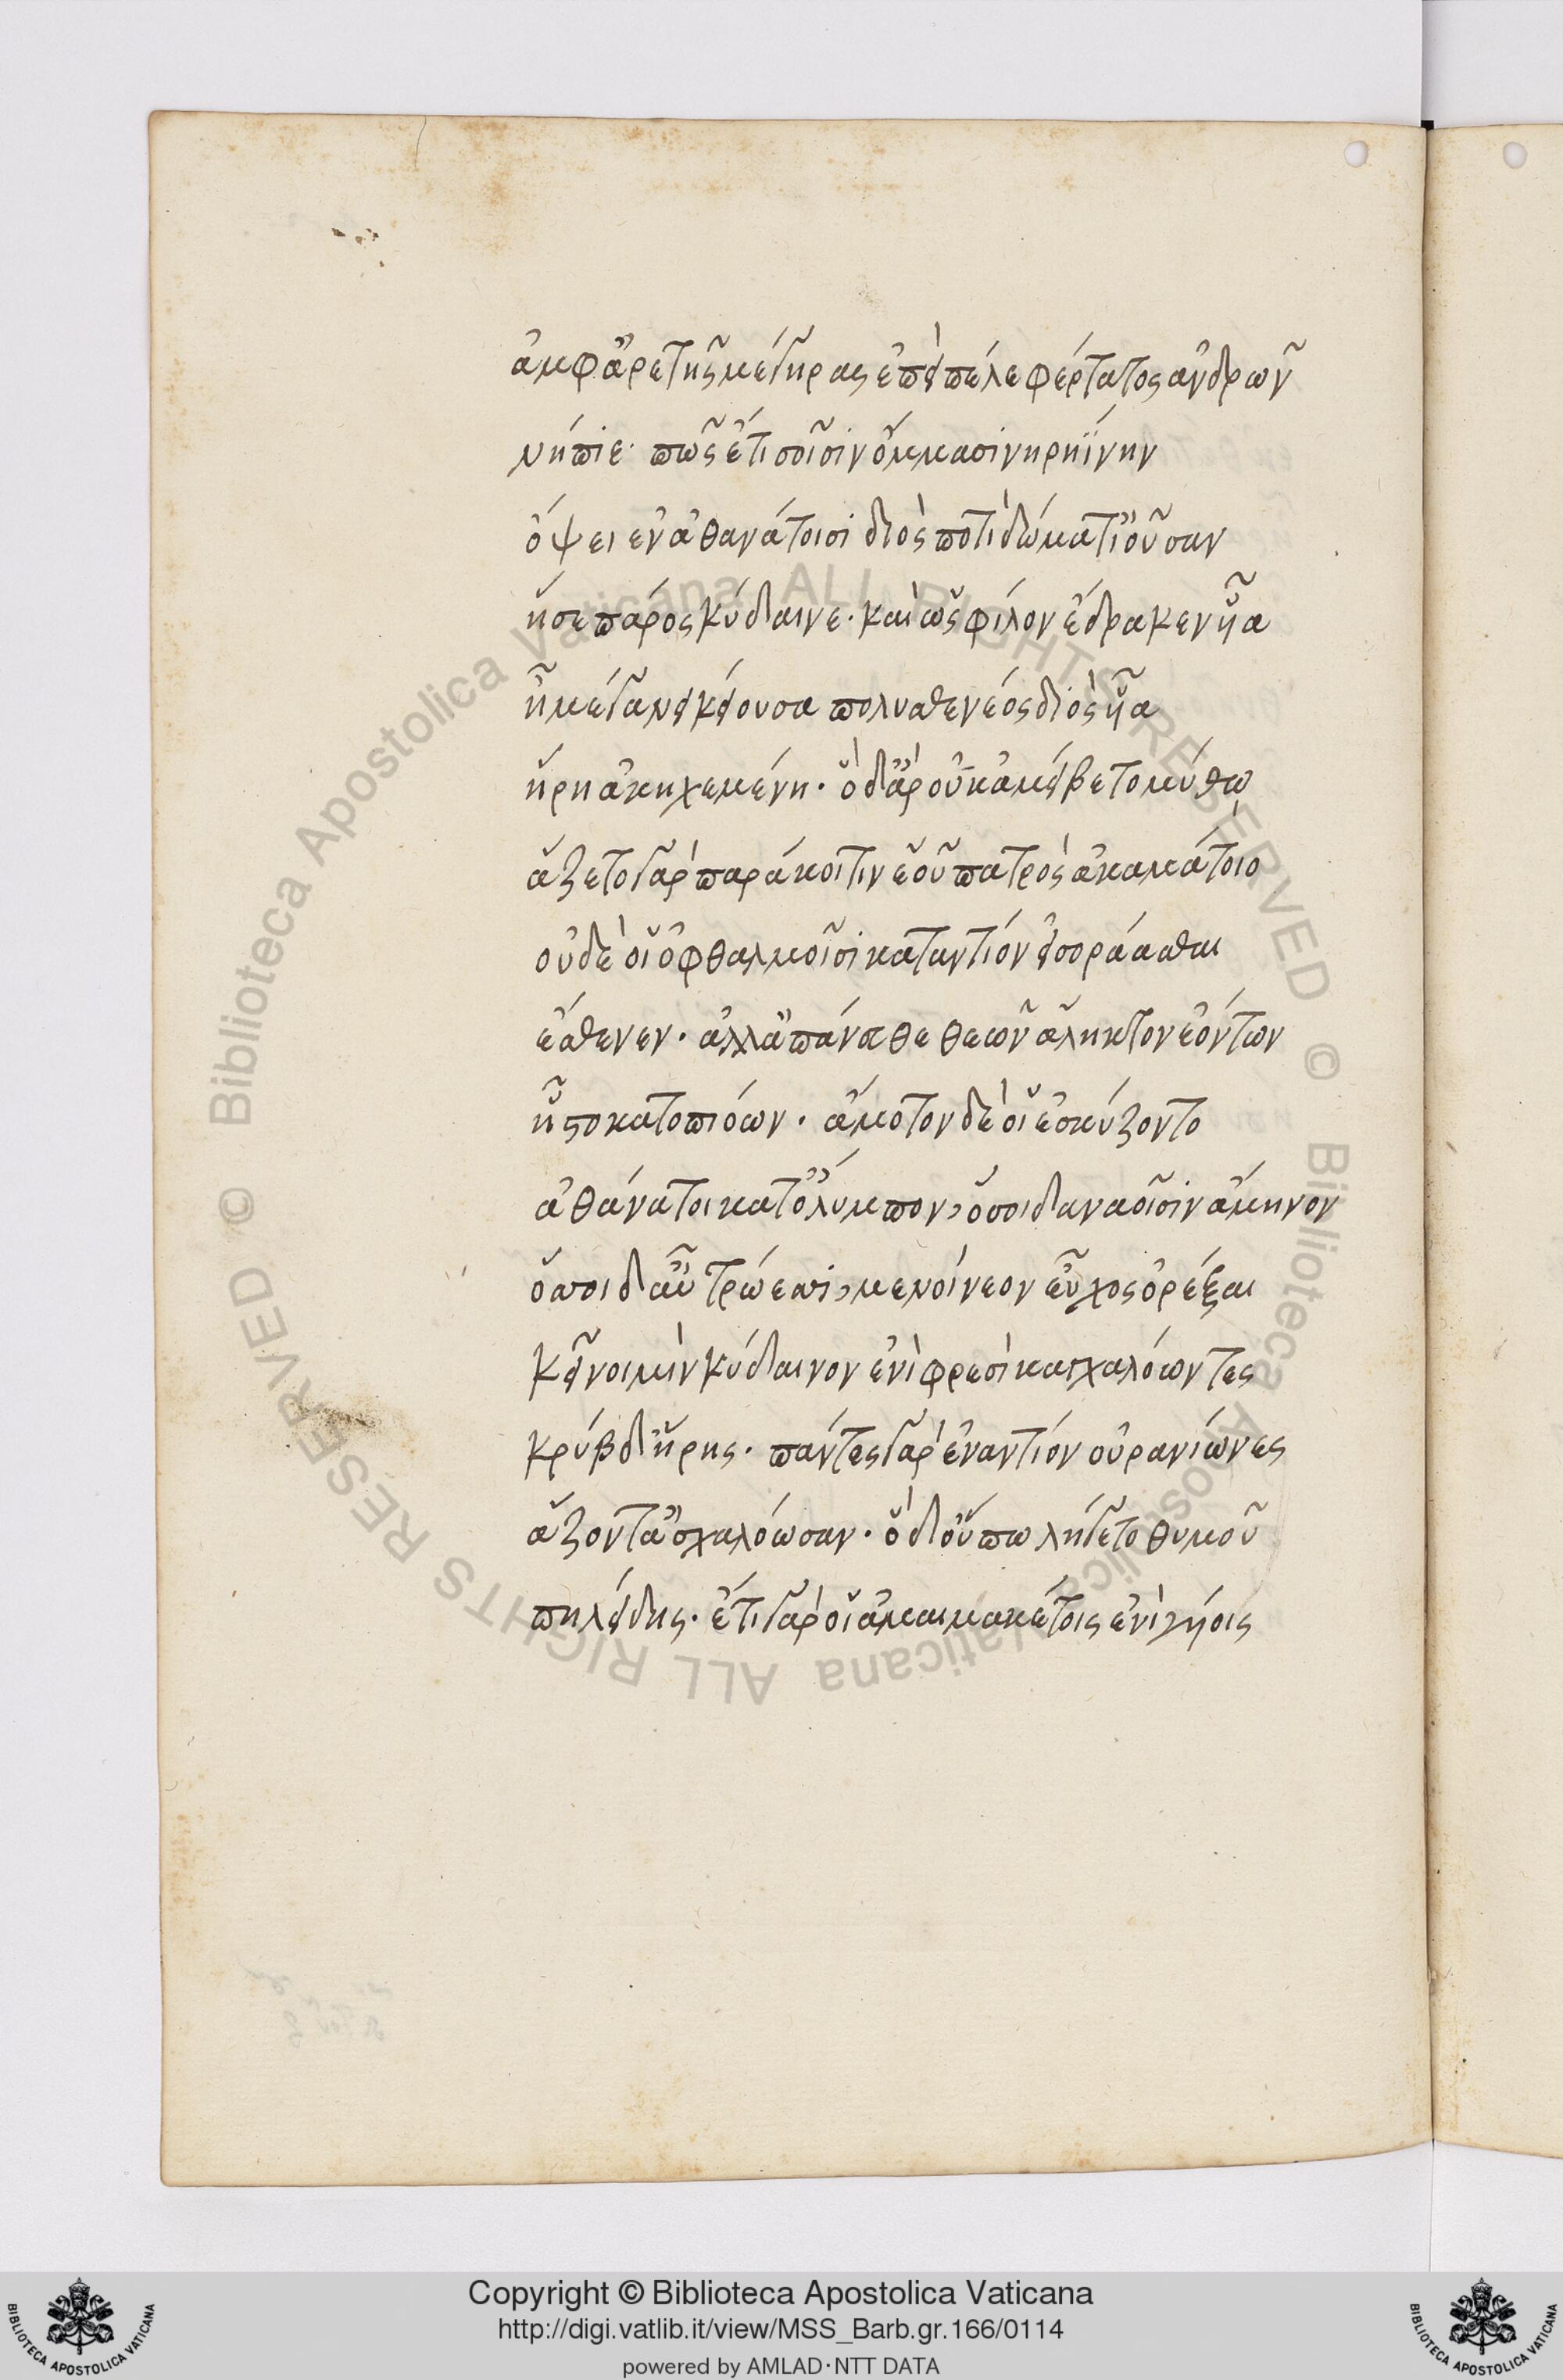 ἀμφ' ἀρετῆς μέγηρας ἐπεὶ πέλε φέρτατος ἀνδρῶν
νήπιε· πῶς ἔτι σοῖσιν ὄμμασι νηρηΐνην
ὄψει ἐν ἀθανάτοισι διὸς ποτὶ δώματι οὖσαν
ἥ σε πάρος κύδαινε· καὶ ὡς φίλον ἔδρακεν υἷα
ἦ μέγα νεικείουσα πολυσθενέος διὸς υἷα
ἥρη ἀκηχεμένη· ὁ δ' ἄρ' οὐκ ἀμείβετο μύθω
ἅζετο γὰρ παράκοιτιν ἑοῦ πατρὸς ἀκαμάτοιο
οὐδέ οἱ ὀφθαλμοῖσι καταντίον εἰσοράασθαι
ἔσθενεν· ἀλλ' ἀπάνευθε θεῶν ἄληκτον ἐόντων
ἧστο κατοπιόων· ἄμοτον δέ οἱ ἐσκύζοντο
ἀθάνατοι κατ' ὄλυμπον, ὅσοι δαναοῖσιν ἀμήνον
ὅσσοι δ' αὖ τρώεσσι, μενοίνεον εὖχος ὀρέξαι
κεῖνοι μὶν κύδαινον ἐνὶ φρεσὶ καγχαλόωντες
κρύβδ' ἥρης· πάντες γὰρ ἐναντίον οὐρανίωνες
ἅζοντ' ἀσχαλόωσαν· ὁ δ' οὔπω λήγετο θυμοῦ
πηλείδης· ἔτι γάρ οἱ ἀμαιμακέτοις ἐνὶ γυίοις
Copyright © Biblioteca Apostolica Vaticana
http://digi.vatlib.it/view/MSS_Barb.gr.166/0114
powered by AMLAD·NTT DATA
BIBLIOTECA APOSTOLICA VATICANA
BIBLIOTECA APOSTOLICA VATICANA
© Biblioteca Apostolica Vaticana ALL RIGHTS RESERVED
© Biblioteca Apostolica Vaticana ALL RIGHTS RESERVED